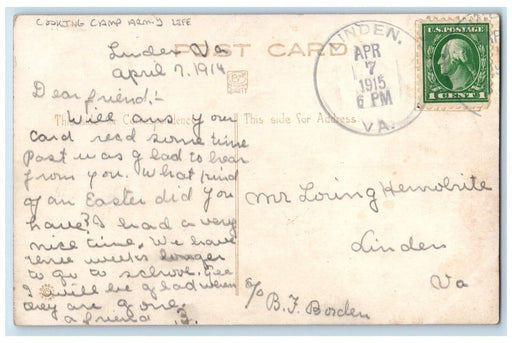 COOKING CAMP ARMY LIFE
POST CARD
Linden Va
April 7. 1914
Dear friend,-
Will ans your
card recd some time
past was glad to hear
from you. What kind
of an Easter did you
have? I had a very
nice time. We have
three weeks longer
to go to school, Gee
I will be glad when
they are gone.
a friend
This space for Correspondence
This side for Address
LINDEN,
APR
7
1915
6 PM
VA.
U.S. POSTAGE
1 CENT 1
Mr Loring
Linden
Va
c/o B. F. Borden